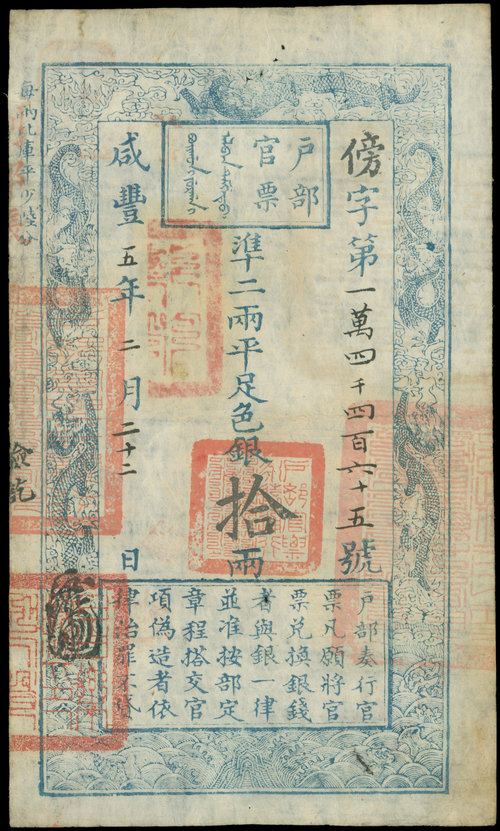 戶部
官票
傍字第一萬四千四百六十五號
準二兩平足色銀拾兩
咸豐五年二月二十二日
戶部奏行官
票凡願將官
票兌換銀錢
者與銀一律
並准按部定
章程搭交官
項偽造者依
律治罪不貸
每兩比庫平少陸分